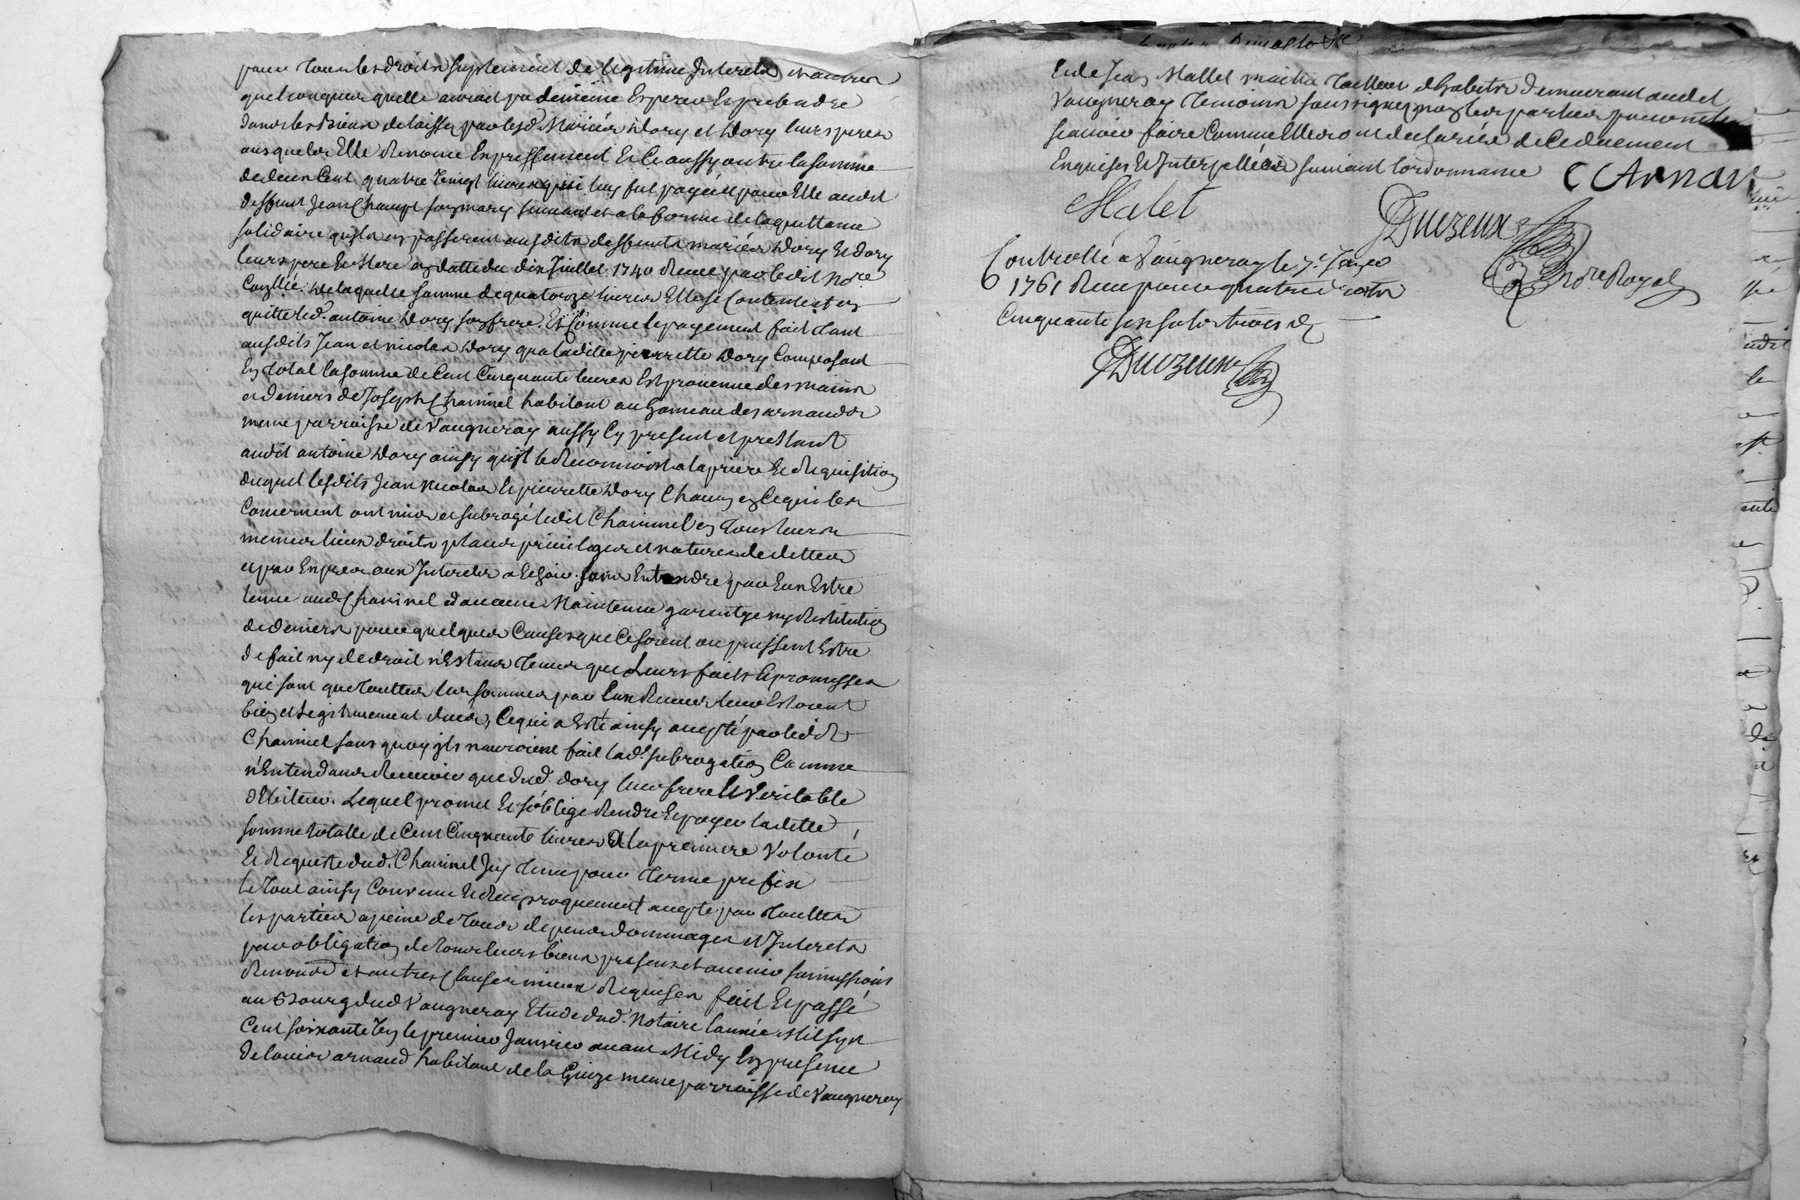 pour tous les droits suplement de legitime Interets et autres
quelconques quelle auroit pu dememe Esperer Et pretendre
dans les biens delaissés par lesd. Mariés Dory et Dory leurs peres
ausquels Elle Renonce Expressement Et Ce aussy outre la somme
de deux Cent quatre vingt livres qui luy fut payée pour Elle audit
deffunt Jean Champt son mary suivant et a la forme de la quittance
solidaire quils en passerent ausdits deffunts mariés Dory Et Dory
leurs pere Et Mere en datte du dix Juillet 1740 Receue par ledit No.re
De laquelle somme de quatorze livres Elle se Contente et en
quitte led. antoine Dory son frere. Et Comme le payement fait tant
ausdits Jean et nicolas Dory qua laditte pierrette Dory Composant
En total la somme de Cent Cinquante livres Est provenue des mains
et deniers de Joseph Chainel habitant au hameau des arnauds
meme parroisse de Vaugneray aussy Cy present et prestant
audit antoine Dory ainsy quil le Reconnoist a la priere Et Requisition
duquel lesdits Jean Nicolas Et pierrette Dory Chacun en Ce qui les
Concernent ont mis et subrogé ledit Chainnel en tous leurs
memes lieux droits places privileges et natures de dettes
et par Exprés aux Interets a Echoir sans Entendre par Eux Estre
tenue aud. Chainnel daucune Maintenue garentye ny Restitution
de deniers pour quelques Causes que Ce soient ou puissent Estre
de fait ny de droit n'Estans tenus que de Leurs faits Et promesses
qui sont que touttes les sommes par Eux Receues leur Estoient
bien et legitimement dues, Ce qui a Esté ainsy accepté par ledit
Chainnel sans quoy ils nauroient fait lad. subrogation Comme
n'Entendans Recevoir que dud. Dory leur frere Et Veritable
debiteur. Lequel promet Et s'oblige Rendre Et payer laditte
somme totalle de Cent Cinquante livres A la premiere Volonté
Et Requeste dud. Chainnel Icy tenu pour terme prefix
le tout ainsy Convenu Et Reciproquement accepté par touttes
les parties a peine de tous depens dommages et Interets
par obligation de tous leurs biens presens et avenir soumissions
Renonciã. et autres Clauses mieux Requises fait Et passé
au Bourg dud Vaugneray Etude dud. Notaire lannée Mil sept
Cent soixante Un le premier Janvier avant Midy En presence
de Louis arnaud habitant de la meme parroisse de Vaugneray
Et de Jean Mallet maitre tailleur d'habits demeurant audit
Vaugneray temoins soussignez non les parties pour ne le
scavoir faire Comme Elles ont declarées de Ce duement
Enquises Et Interpellées suivant lordonnance C Arnau
Malet
Duczeux
No.re Royal
Controllé a Vaugneray le 7.e Janv.er
1761 Receu pour quatre droits
Cinquante six sols trois d.
Duczeux